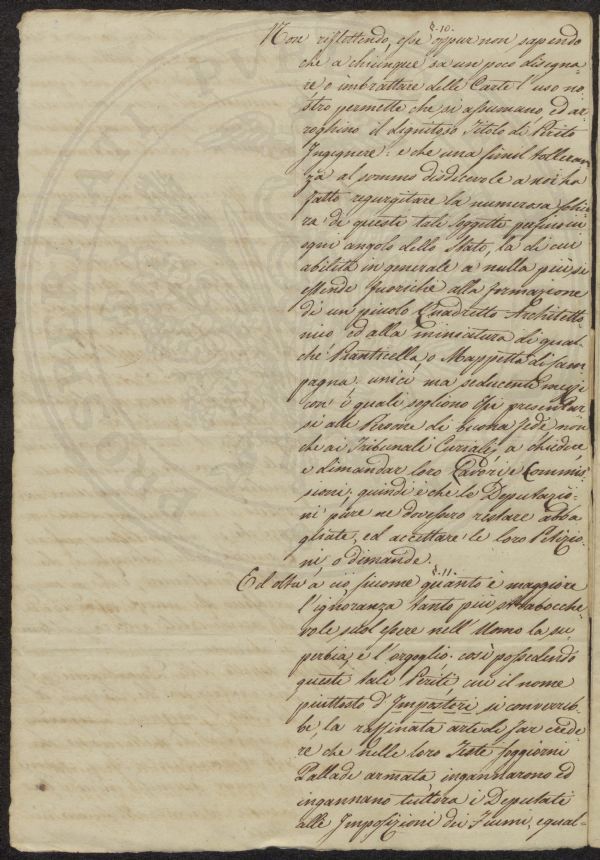 §. 10.
Non riflettendo, esse oppur non sapendo
che a chiunque sa un poco disegna=
re o imbrattare delle Carte l'uso no
stro permette che si assumano, ed ar
roghino il dignitoso Titolo di Perito
Ingegnere: e che una simil tolleran
za al sommo disdicevole a noi ha
fatto regurgitare la numerosa
ra di questi tali Soggetti persino in
ogni angolo dello Stato, la di cui
abilità in generale a nulla più si
estende fuorichè alla formazione
di un picolo Quadretto Architetto
nico ed alla miniatura di qual
che Pianticella o Mappetta di Cam
pagna: unici ma seducenti mezzi
con i quali sogliono essi presentar
si alle Persone di buona fede, non
che ai Tribunali Curiali, a chiedere
e dimandar loro Lavori, e Commis
sioni; quindi è che le Deputazio=
ni pure ne dovessero restare abba
gliate, ed accettare le loro Petizio=
ni o dimande.
§. 11.
Ed oltra a ciò siccome quanto è maggiore
l'ignoranza tanto più strabocche
vole suol essere nell'Uomo la su
perbia, e l'orgoglio: così possedendo
questi tali Periti cui il nome
piuttosto d'Impostori si converreb
be, la raffinata arte di far crede
re che nelle loro Teste soggiorni
Pallade armata ingannarono ed
ingannano tuttora i Deputati
alle Imposizioni dei Fiumi, egual=
PRESTATI PUBL